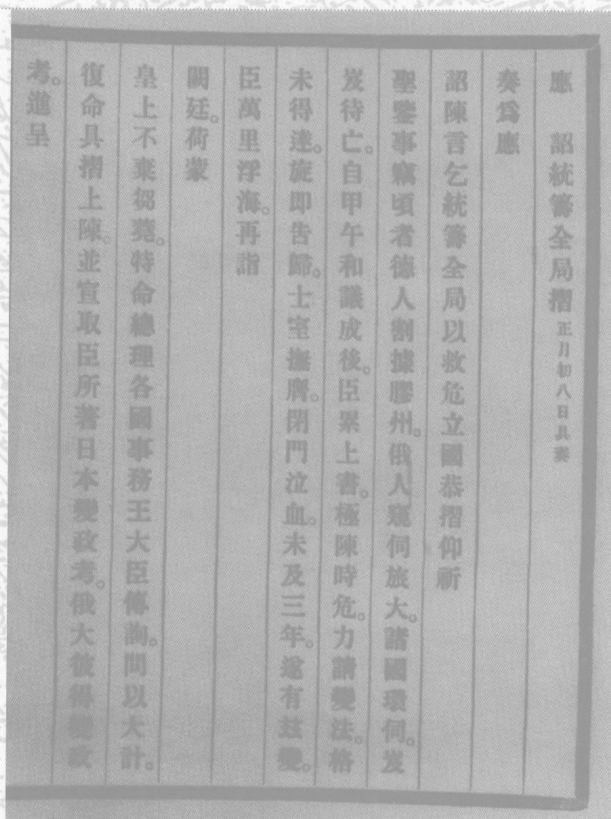 應　詔統籌全局摺正月初八日具奏
奏爲應
詔陳言乞統籌全局以救危立國恭摺仰祈
聖鑒事竊頃者德人割據膠州。俄人窺伺旅大。諸國環伺。岌
岌待亡。自甲午和議成後。臣累上書。極陳時危。力請變法。格
未得達。旋卽告歸。士室撫膺。閉門泣血。未及三年。遂有玆變。
臣萬里浮海。再詣
闕廷。荷蒙
皇上不棄芻蕘。特命總理各國事務王大臣傳詢。問以大計。
復命具摺上陳。並宣取臣所著日本變政考。俄大彼得變政
考。進呈